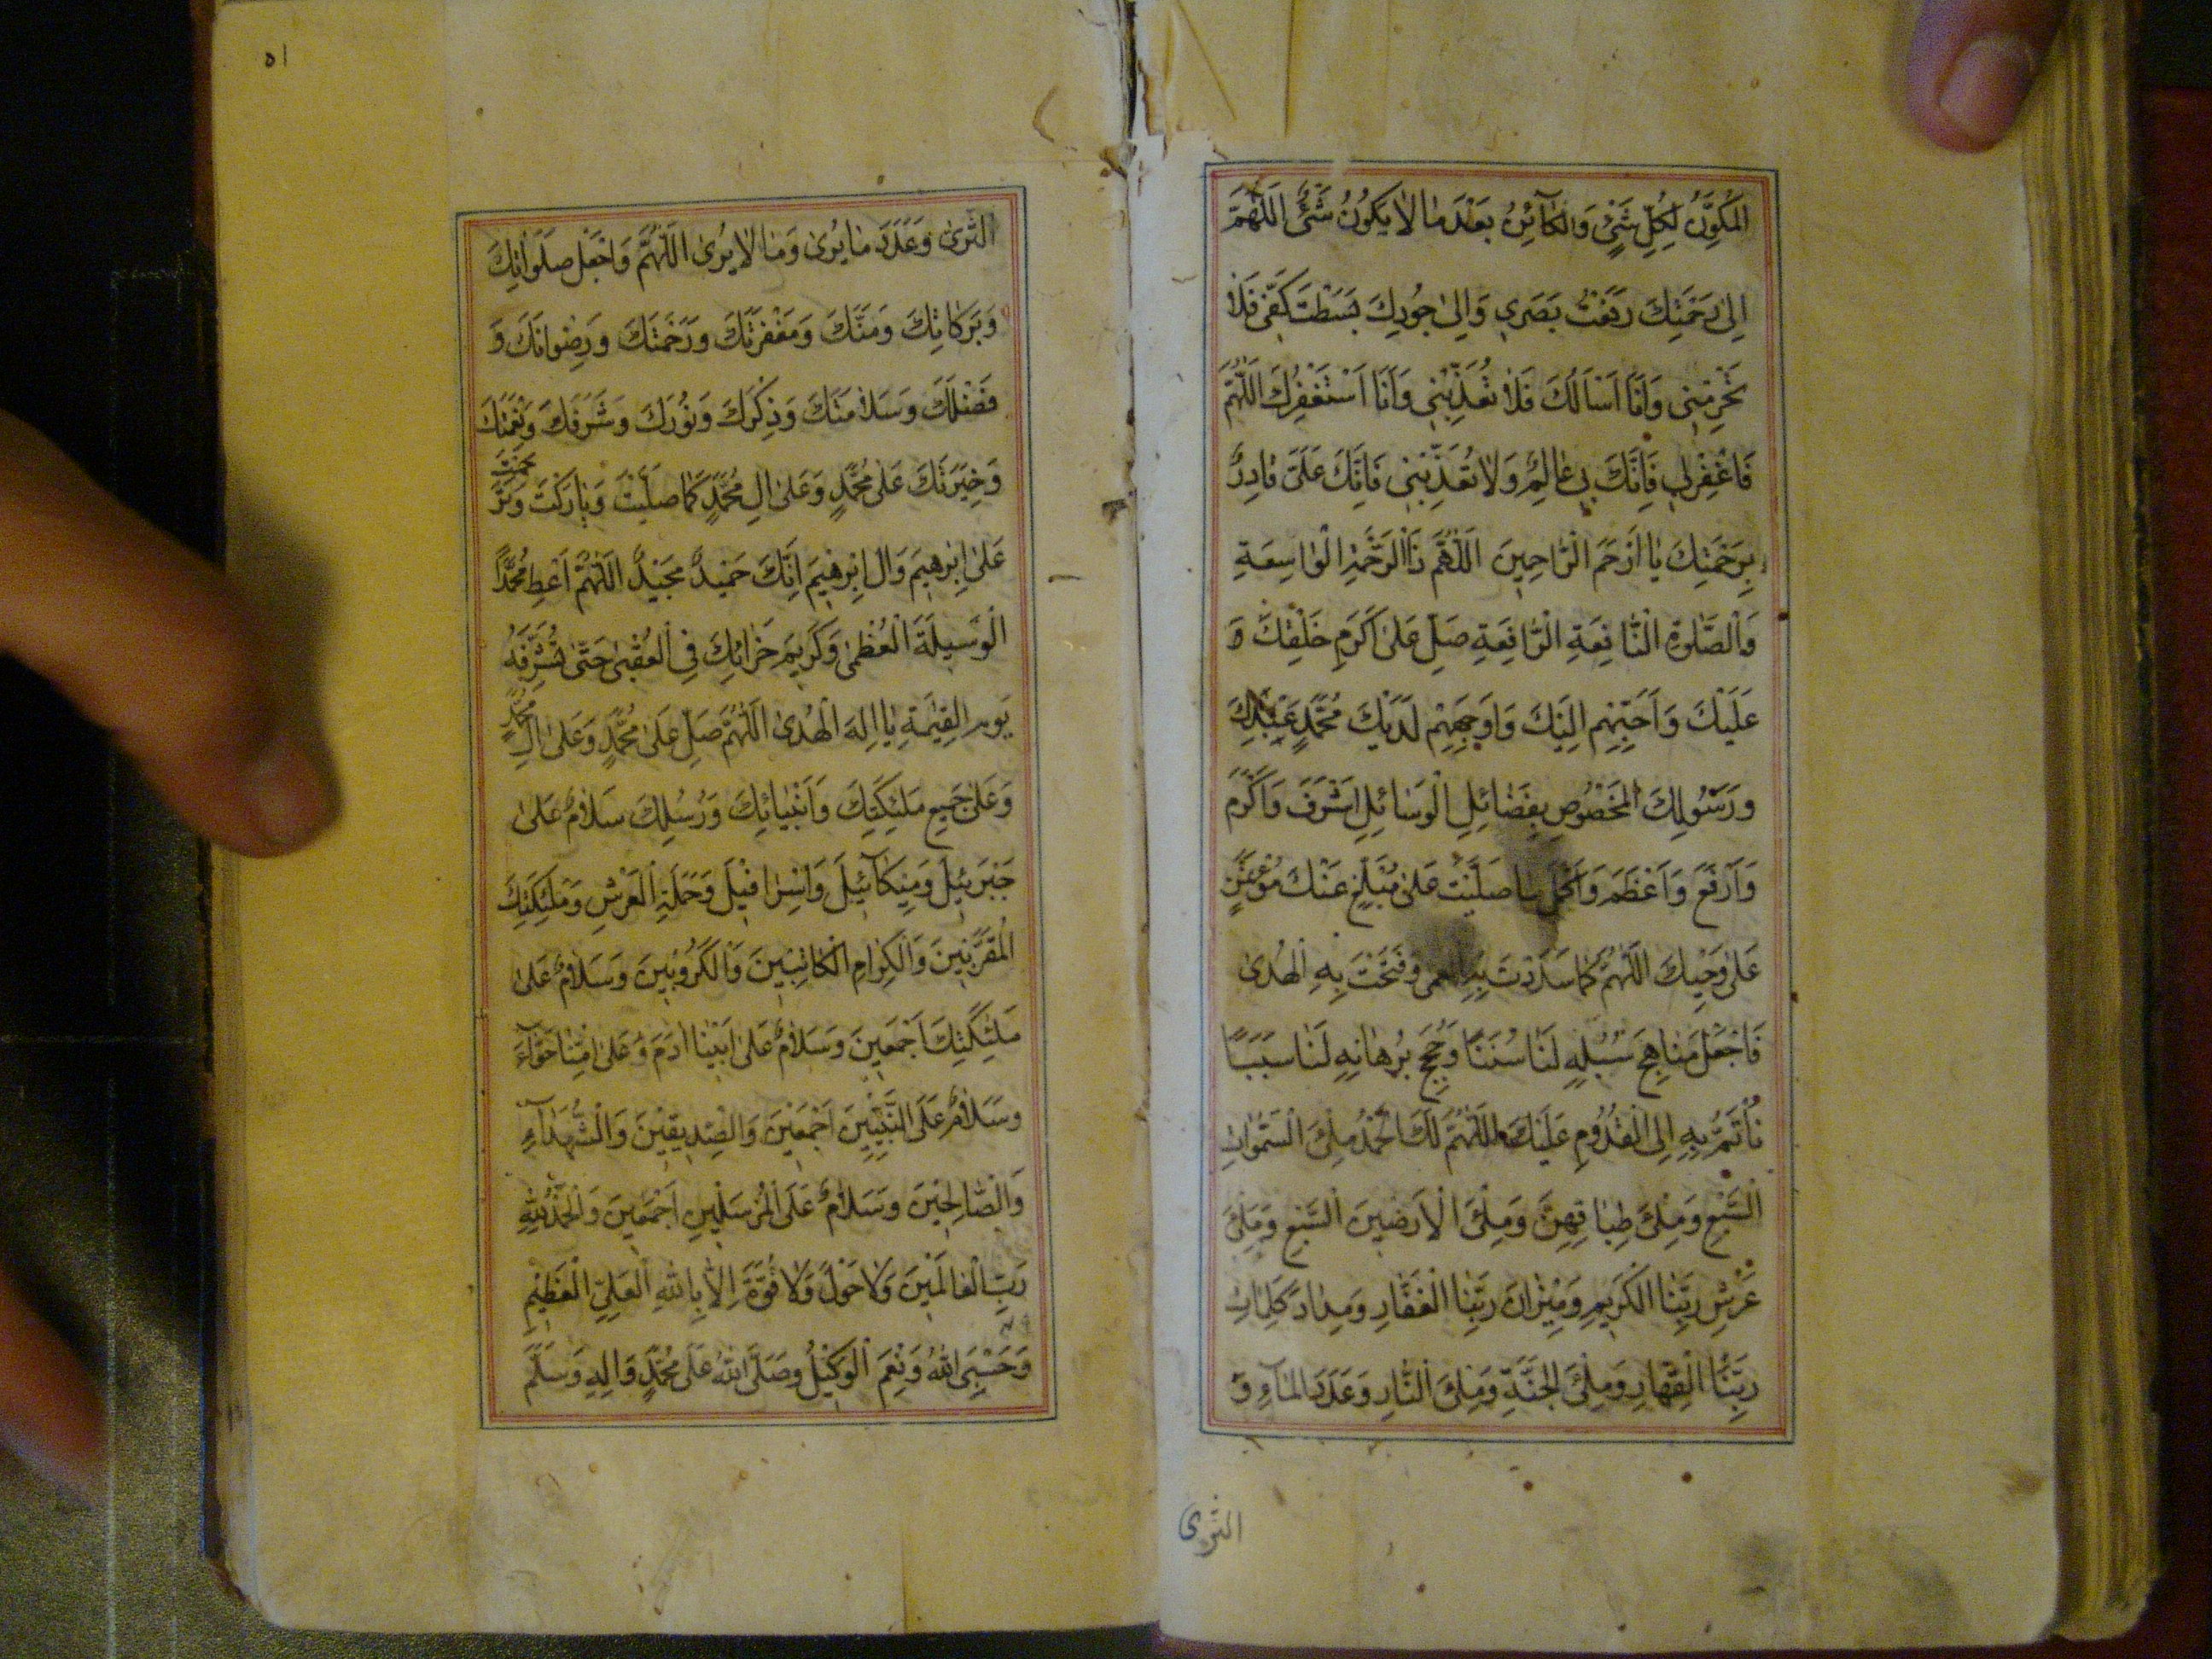 المُكَوِّنُ لِكُلِّ شَيْءٍ وَالْكَآئِنُ بَعْدَ مَا لَا يَكُونُ شَيْءٌ اَللّٰهُمَّ
اِلٰى رَحْمَتِكَ رَفَعْتُ بَصَرِي وَاِلٰى جُودِكَ بَسَطْتُ كَفّي فَلَا
تَحْرِمْنِي وَاَنَا اَسْاَلُكَ فَلَا تُعَذِّبْنِي وَاَنَا اَسْتَغْفِرُكَ اَللّٰهُمَّ
فَاغْفِرْلِي فَاِنَّكَ بِي عَالِمٌ وَلَا تُعَذِّبْنِي فَاِنَّكَ عَلَيَّ قَادِرٌ
بِرَحْمَتِكَ يَا اَرْحَمَ الرَّاحِمِينَ اَللّٰهُمَّ ذَاالرَّحْمَةِ الْوَاسِعَةِ
وَالصَّلٰوةِ النَّافِعَةِ الرَّافِعَةِ صَلِّ عَلٰى اَكْرَمِ خَلْقِكَ
عَلَيْكَ وَاَحَبِّهِمْ اِلَيْكَ وَاَوْجَهِهِمْ لَدَيْكَ مُحَمَّدٍ عَبْدِكَ
وَرَسُولِكَ الْمَخْصُوصِ بِفَضَائِلِ الْوَسَائِلِ اَشْرَفَ وَاَكْرَمَ
وَاَرْفَعَ وَاَعْظَمَ وَاَكْمَلَ مَا صَلَّيْتَ عَلٰى مُبَلِّغٍ عَنْكَ مُؤْتَمَنٍ
عَلٰى وَحْيِكَ اَللّٰهُمَّ كَمَا سَدَدْتَ بِهِ الْعَمٰى وَفَتَحْتَ بِهِ الْهُدٰى
فَاجْعَلْ مَنَاهِجَ سُبُلِهِ لَنَا سُنَنًا وَحُجَجَ بُرْهَانِهِ لَنَا سَبَبًا
نَأْتَمُّ بِهِ اِلَى الْقُدُومِ عَلَيْكَ اَللّٰهُمَّ لَكَ الْحَمْدُ مِلْءَ السَّمٰوَاتِ
السَّبْعِ وَمِلْءَ طِبَاقِهِنَّ وَمِلْءَ الْاَرَضِينَ السَّبْعِ وَمِلْءَ
عَرْشِ رَبِّنَا الْكَرِيمِ وَمِيْزَانَ رَبِّنَا الْغَفَّارِ وَمِدَادَ كَلِمَاتِ
رَبِّنَا الْقَهَّارِ وَمِلْءَ الْجَنَّةِ وَمِلْءَ النَّارِ وَعَدَدَ الْمَاءِ وَ
الثرى
٥١
الثَّرٰى وَعَدَدَ مَا يُرٰى وَمَا لَا يُرٰى اَللّٰهُمَّ وَاجْعَلْ صَلَوَاتِكَ
وَبَرَكَاتِكَ وَمَنَّكَ وَمَغْفِرَتَكَ وَرَحْمَتَكَ وَرِضْوَانَكَ وَ
فَضْلَكَ وَسَلَامَتَكَ وَذِكْرَكَ وَنُورَكَ وَشَرَفَكَ وَنِعْمَتَكَ
وَخِيَرَتَكَ عَلٰى مُحَمَّدٍ وَعَلٰى اٰلِ مُحَمَّدٍ كَمَا صَلَّيْتَ وَبَارَكْتَ وَتَرَحَّمْتَ
عَلٰى اِبْرٰهِيمَ وَاٰلِ اِبْرٰهِيمَ اِنَّكَ حَمِيدٌ مَجِيدٌ اَللّٰهُمَّ اَعْطِ مُحَمَّدًا
الْوَسِيلَةَ الْعُظْمٰى وَكَرِيمَ جَزَائِكَ فِي الْعُقْبٰى حَتّٰى تُشَرِّفَهُ
يَوْمَ الْقِيٰمَةِ يَا اِلٰهَ الْهُدٰى اَللّٰهُمَّ صَلِّ عَلٰى مُحَمَّدٍ وَعَلٰى اٰلِ مُحَمَّدٍ
وَعَلٰى جَمِيعِ مَلٰئِكَتِكَ وَاَنْبِيَائِكَ وَرُسُلِكَ سَلَامٌ عَلٰى
جَبْرَئِيلَ وَمِيكَآئِيلَ وَاِسْرَافِيلَ وَحَمَلَةِ الْعَرْشِ وَمَلٰئِكَتِكَ
الْمُقَرَّبِينَ وَالْكِرَامِ الْكَاتِبِينَ وَالْكَرُوبِينَ وَسَلَامٌ عَلٰى
مَلٰئِكَتِكَ اَجْمَعِينَ وَسَلَامٌ عَلٰى اَبِيْنَا اٰدَمَ وَعَلٰى اُمِّنَا حَوَّآءَ
وَسَلَامٌ عَلَى النَّبِيِّينَ اَجْمَعِيْنَ وَالصِّدِيقِيْنَ وَالشُّهَدَآءِ
وَالصَّالِحِينَ وَسَلَامٌ عَلَى الْمُرْسَلِيْنَ اَجْمَعِينَ وَالْحَمْدُ لِلّٰهِ
رَبِّ الْعَالَمِيْنَ وَلَا حَوْلَ وَلَا قُوَّةَ اِلَّا بِاللّٰهِ الْعَلِيِّ الْعَظِيْمِ
وَحَسْبِيَ اللّٰهُ وَنِعْمَ الْوَكِيْلُ وَصَلَّى اللّٰهُ عَلٰى مُحَمَّدٍ وَاٰلِهِ وَسَلَّمَ